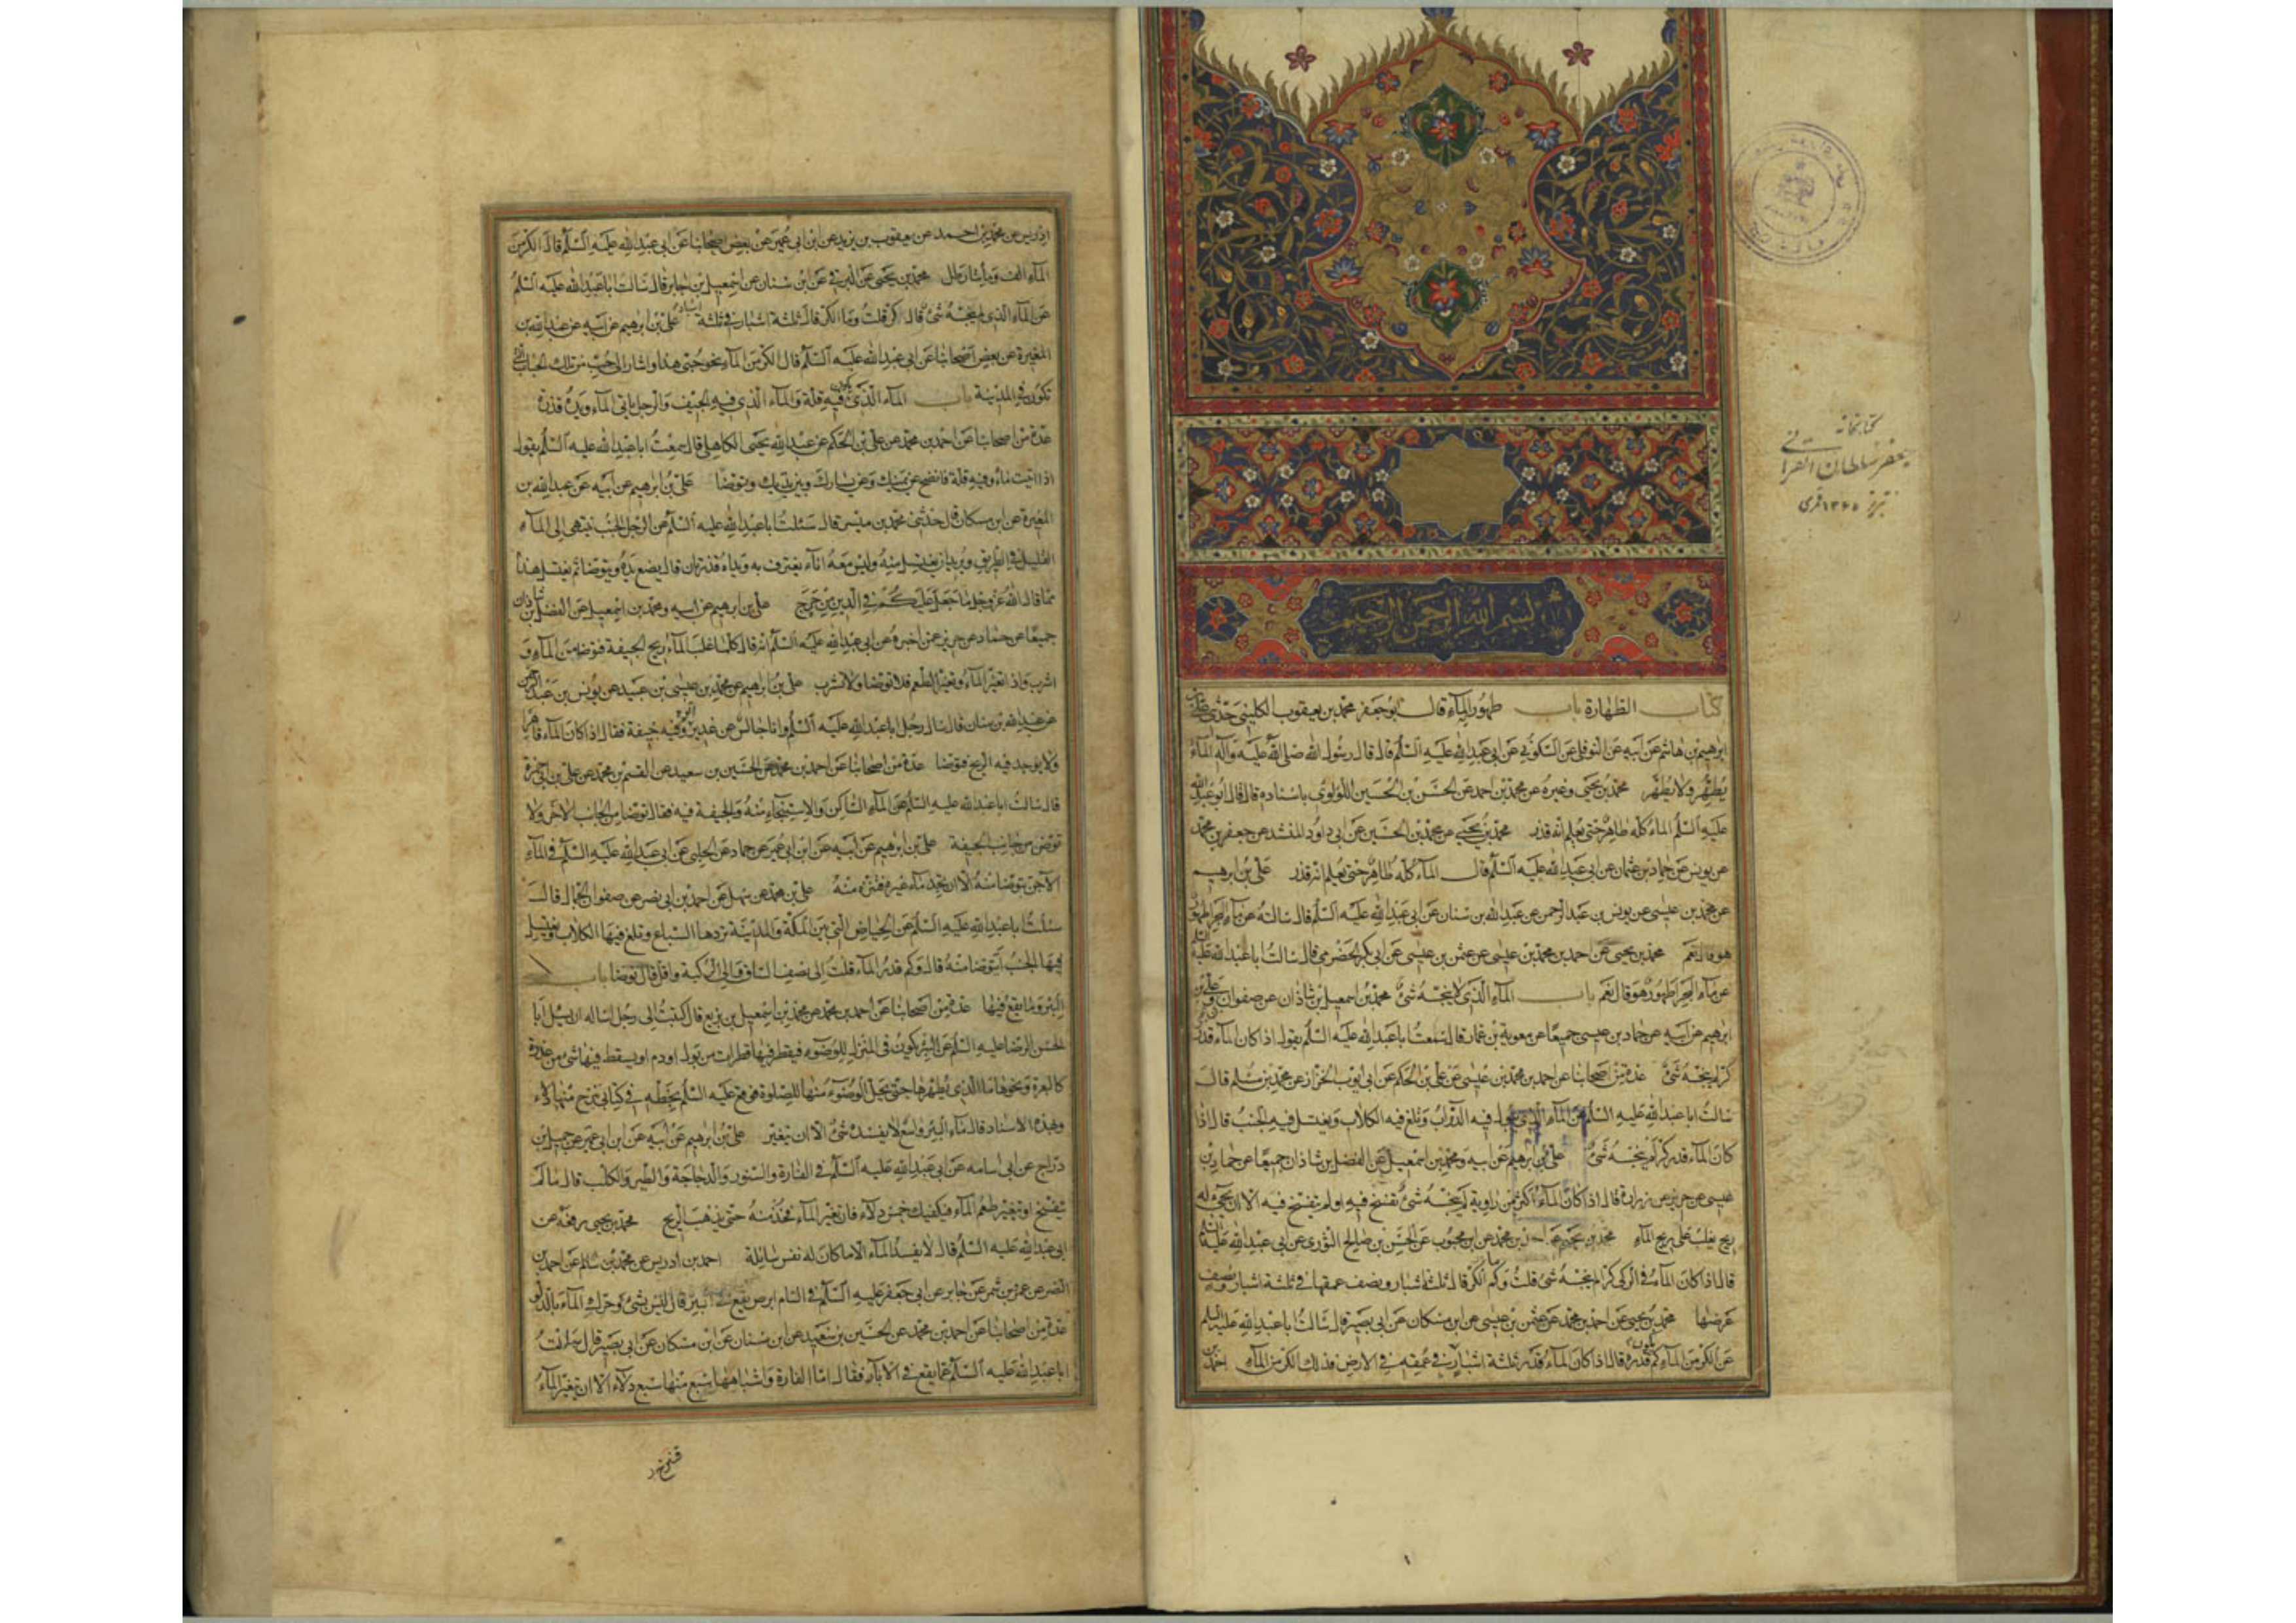 بسم الله الرحمن الرحيم
كتاب الطهارة باب طهور الماء قال ابو جعفر محمد بن يعقوب الكليني حدثني علي بن
ابرهيم بن هاشم عن ابيه عن النوفلي عن السكوني عن ابي عبد الله عليه السلم قال قال رسول الله صلى الله عليه وآله الماء
يُطَهِّر ولا يُطَهَّر محمد بن يحيى وغيره عن محمد بن احمد عن الحسن بن الحسين اللؤلوي باسناده قال قال ابو عبد الله
عليه السلم الماء كله طاهر حتى يعلم انه قذر محمد بن يحيى عن محمد بن الحسين عن ابي داود المنشد عن جعفر بن محمد
عن يونس عن حماد بن عثمان عن ابي عبد الله عليه السلم قال الماء كله طاهر حتى يعلم انه قذر علي بن ابرهيم
عن محمد بن عيسى عن يونس بن عبد الرحمن عن عبد الله بن سنان عن ابي عبد الله عليه السلم قال سالته عن ماء البحر اطهور
هو قال نعم محمد بن يحيى عن احمد بن محمد بن عيسى عن عثمن بن عيسى عن ابي بكر الحضرمي قال سالت ابا عبد الله عليه السلم
عن ماء البحر اطهور هو قال نعم باب الماء الذي لا ينجسه شئ محمد بن اسمعيل بن شاذان عن صفوان وعلي بن
ابرهيم عن ابيه عن حماد بن عيسى جميعا عن معوية بن عمار قال سمعت ابا عبد الله عليه السلم يقول اذا كان الماء قدر
كر لم ينجسه شئ عدة من اصحابنا عن احمد بن محمد بن عيسى عن علي بن الحكم عن ابي ايوب الخزاز عن محمد بن مسلم قال
سالت ابا عبد الله عليه السلم عن الماء الذي تبول فيه الدواب وتلغ فيه الكلاب ويغتسل فيه الجنب قال اذا
كان الماء قدر كر لم ينجسه شئ علي بن ابرهيم عن ابيه ومحمد بن اسمعيل عن الفضل بن شاذان جميعا عن حماد بن
عيسى عن حريز عن زرارة قال اذا كان الماء اكثر من راوية لم ينجسه شئ تفسخ فيه او لم يتفسخ فيه الا ان يجئ له
ريح يغلب على ريح الماء محمد بن يحيى عن احمد بن محمد عن ابن محبوب عن الحسن بن صالح الثوري عن ابي عبد الله عليه السلم
قال اذا كان الماء في الركي كرا لم ينجسه شئ قلت وكم الكر قال ثلثة اشبار ونصف عمقها في ثلثة اشبار ونصف
عرضها محمد بن يحيى عن احمد بن محمد عن عثمن بن عيسى عن ابن مسكان عن ابي بصير قال سالت ابا عبد الله عليه السلم
عن الكر من الماء كم يكون قدره قال اذا كان الماء قدر ثلثة اشبار في عمقه في الارض فذلك الكر من الماء احمد بن
كتابخانه
جعفر سلطان القرائي
تبريز ١٣٤٥ قمرى
ادريس عن محمد بن احمد عن يعقوب بن يزيد عن ابن ابي عمير عن بعض اصحابنا عن ابي عبد الله عليه السلم قال الكر من
الماء الف ومأتا رطل محمد بن يحيى عن البرقي عن ابن سنان عن اسمعيل بن جابر قال سالت ابا عبد الله عليه السلم
عن الماء الذي لا ينجسه شئ قال كر قلت وما الكر قال ثلثة اشبار في ثلثة اشبار علي بن ابرهيم عن ابيه عن عبد الله بن
المغيرة عن بعض اصحابنا عن ابي عبد الله عليه السلم قال الكر من الماء نحو حبي هذا واشار الى حب من تلك الحباب التي
تكون في المدينة باب الماء الذي يكون فيه قلة والماء الذي فيه الجيف والرجل ياتي الماء ويده قذرة
عدة من اصحابنا عن احمد بن محمد عن علي بن الحكم عن عبد الله يحيى الكاهلي قال سمعت ابا عبد الله عليه السلم يقول
اذا اتيت ماء وفيه قلة فانضح عن يمينك وعن يسارك وبين يديك وتوضا علي بن ابرهيم عن ابيه عن عبد الله بن
المغيرة عن ابن مسكان قال حدثني محمد بن ميسر قال سئلت ابا عبد الله عليه السلم عن الرجل الجنب ينتهي الى الماء
القليل في الطريق ويريد ان يغتسل منه وليس معه اناء يغترف به ويداه قذرتان قال يضع يده ويتوضا ثم يغتسل هذا
مما قال الله عز وجل ما جعل عليكم في الدين من حرج علي بن ابرهيم عن ابيه ومحمد بن اسمعيل عن الفضل بن شاذان
جميعا عن حماد عن حريز عمن اخبره عن ابي عبد الله عليه السلم انه قال كلما غلب الماء ريح الجيفة فتوضا من الماء و
اشرب واذا تغير الماء وتغير الطعم فلا توضا ولا تشرب علي بن ابرهيم عن محمد بن عيسى بن عبيد عن يونس بن عبد الرحمن
عن عبد الله بن سنان قال سال رجل ابا عبد الله عليه السلم وانا جالس عن غدير اتوه وفيه جيفة فقال اذا كان الماء قاهرا
ولا يوجد فيه الريح فتوضا عدة من اصحابنا عن احمد بن محمد عن الحسين بن سعيد عن القسم بن محمد عن علي بن ابي حمزة
قال سالت ابا عبد الله عليه السلم عن الماء الساكن والاستنجاء منه والجيفة فيه فقال توضا من الجانب الاخر ولا
توض من جانب الجيفة علي بن ابرهيم عن ابيه عن ابن ابي عمير عن حماد عن الحلبي عن ابي عبد الله عليه السلم في الماء
الاجن يتوضا منه الا ان تجد ماء غيره فتنزه منه علي بن محمد عن سهل عن احمد بن ابي نصر عن صفوان الجمال قال
سئلت ابا عبد الله عليه السلم عن الحياض التي بين المكة والمدينة تردها السباع وتلغ فيها الكلاب ويغتسل
فيها الجنب أيتوضا منه قال وكم قدر الماء قلت الى نصف الساق والى الركبة واقل قال توضا باب
البئر وما يقع فيها عدة من اصحابنا عن احمد بن محمد عن محمد بن اسمعيل بن بزيع قال كتبت الى رجل اساله ان يسئل ابا
الحسن الرضا عليه السلم عن البئر تكون في المنزل للوضوء فيقطر فيها قطرات من بول او دم او يسقط فيها شئ من عذرة
كالبعرة ونحوها ما الذي يطهرها حتى يحل الوضوء منها للصلوة فوقع عليه السلم بخطه في كتابي تنزح منها دلاء
وبهذه الاسناد قال ماء البئر واسع لا يفسده شئ الا ان تغير علي بن ابرهيم عن ابيه عن ابن ابي عمير عن جميل بن
دراج عن ابي اسامه عن ابي عبد الله عليه السلم في الفارة والسنور والدجاجة والطير والكلب قال ما لم
يتفسخ او يتغير طعم الماء فيكفيك خمس دلاء فان تغير الماء فخذ منه حتى يذهب الريح محمد بن يحيى رفعه عن
ابي عبد الله عليه السلم قال لا يفسد الماء الا ما كان له نفس سائلة احمد بن ادريس عن محمد بن سالم عن احمد بن
النضر عن عمرو بن شمر عن جابر عن ابي جعفر عليه السلم في السام ابرص يقع في البير قال ليس بشئ حرك الماء بالدلو
عدة من اصحابنا عن احمد بن محمد عن الحسين بن سعيد عن ابن سنان عن ابن مسكان عن ابي بصير قال سالت
ابا عبد الله عليه السلم عما يقع في الآبار فقال اما الفارة واشباهها سبع منها سبع دلاء الا ان يتغير الماء